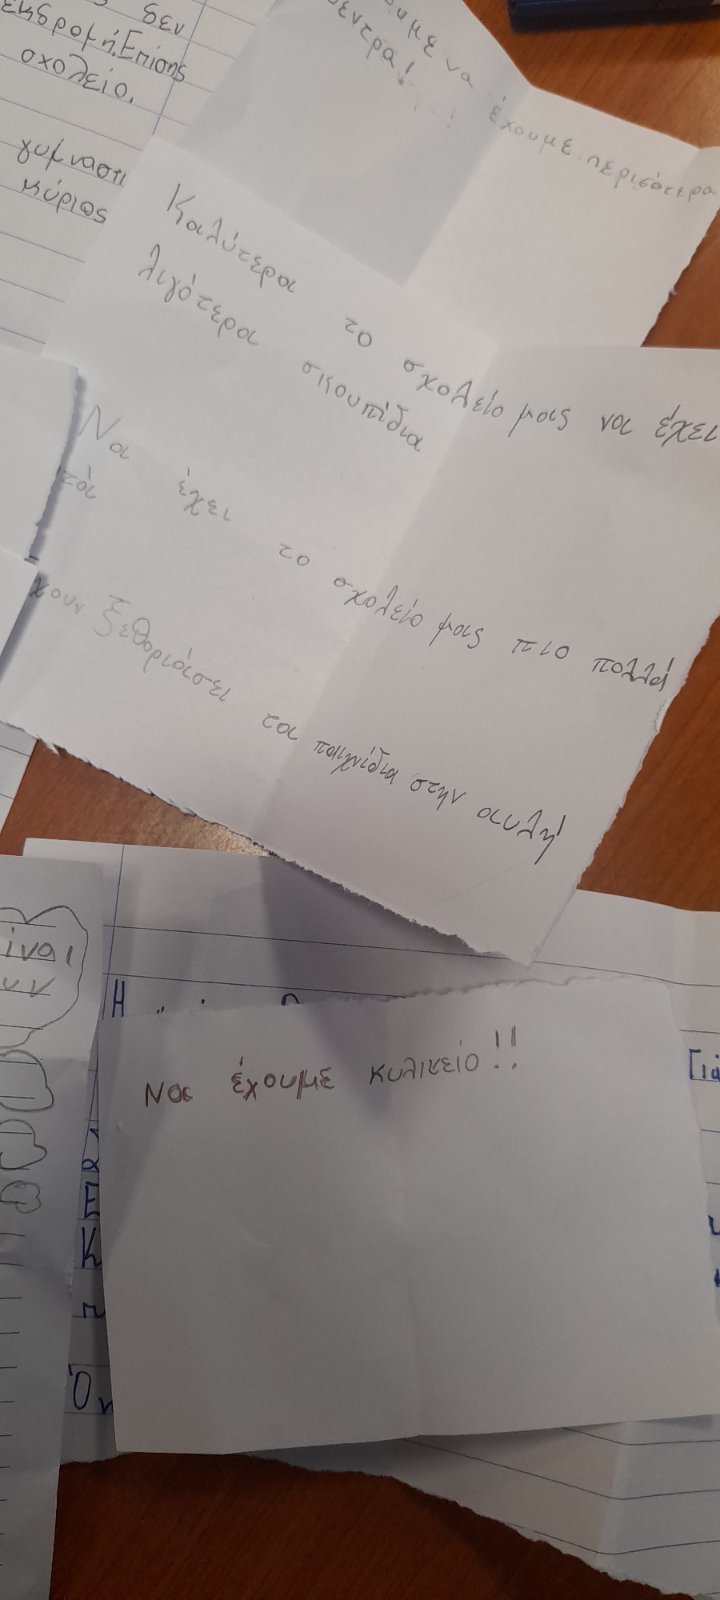 δεν
εκδρομή. Επίσης
σχολείο.
γυμναστι
κύριος
ουμε να έχουμε περισότερα
δέντρα!
Καλύτερα το σχολείο μας να έχει
λιγότερα σκουπίδια
Να έχει το σχολείο μας πιο πολλά
χουν ξεθοριάσει τα παιχνίδια στην αυλή!
Να έχουμε κυλικείο!!
είναι
υν
Η
Γιά
Ε
Κ
π
Όν